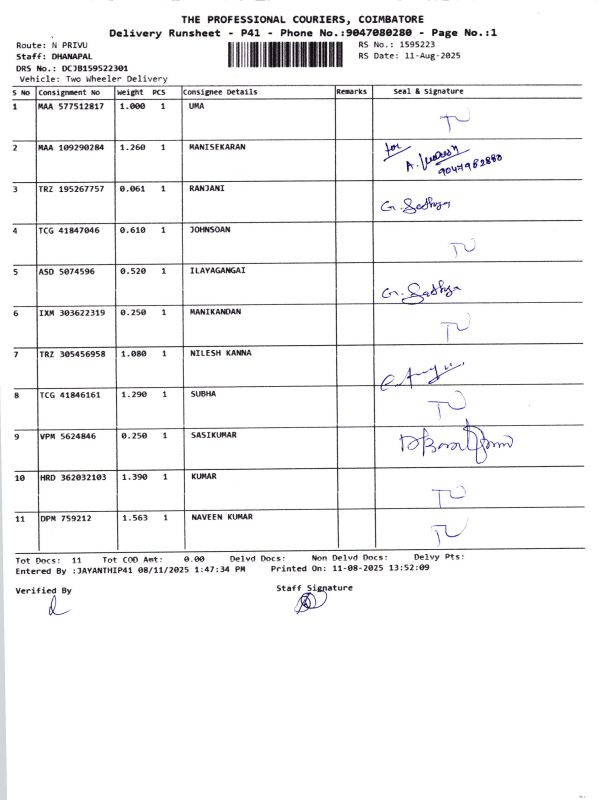 THE PROFESSIONAL COURIERS, COIMBATORE
Delivery Runsheet - P41 - Phone No.:9047080280 - Page No.:1
Route: N PRIVU RS No.: 1595223
Staff: DHANAPAL RS Date: 11-Aug-2025
DRS No.: DCJB159522301
Vehicle: Two Wheeler Delivery
S No Consignment No Weight PCS Consignee Details Remarks Seal & Signature
1 MAA 577512817 1.000 1 UMA TU
2 MAA 109290284 1.260 1 MANISEKARAN for
A.
9047982880
3 TRZ 195267757 0.061 1 RANJANI G. Sathya
4 TCG 41847046 0.610 1 JOHNSOAN TU
5 ASD 5074596 0.520 1 ILAYAGANGAI G. Sathya
6 IXM 303622319 0.250 1 MANIKANDAN TU
7 TRZ 305456958 1.080 1 NILESH KANNA
8 TCG 41846161 1.290 1 SUBHA TU
9 VPM 5624846 0.250 1 SASIKUMAR
10 HRD 362032103 1.390 1 KUMAR TU
11 DPM 759212 1.563 1 NAVEEN KUMAR TU
Tot Docs: 11 Tot COD Amt: 0.00 Delvd Docs: Non Delvd Docs: Delvy Pts:
Entered By :JAYANTHIP41 08/11/2025 1:47:34 PM Printed On: 11-08-2025 13:52:09
Verified By Staff Signature